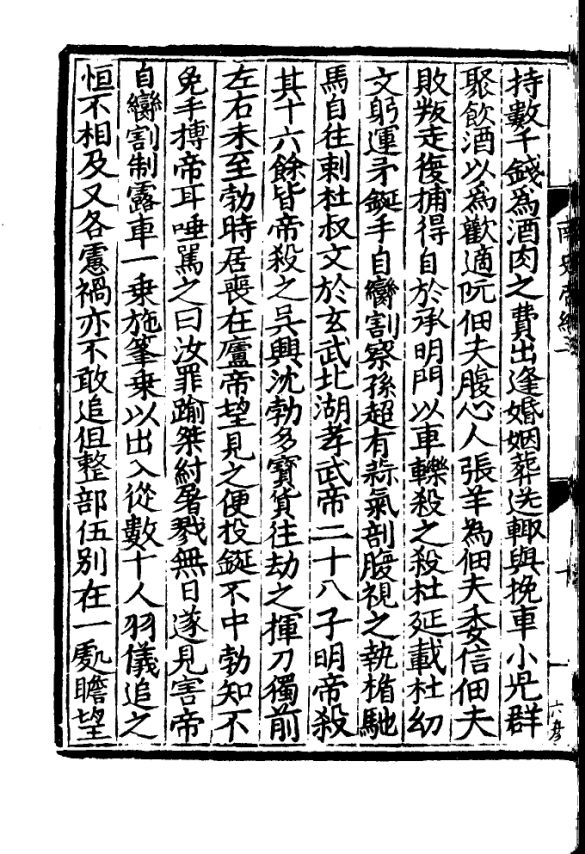 持數千錢為酒肉之費出逢婚姻葬送輙與挽車小兒群
聚飲酒以爲歡適阮佃夫腹心人張羊為佃夫委信佃夫
敗叛走復捕得自於承明門以車轢殺之殺杜延載杜幼
文躬運矛鋋手自臠割察孫超有蒜氣剖腹視之執楯馳
馬自往刺杜叔文於玄武北湖孝武帝二十八子明帝殺
其十六餘皆帝殺之吳興沈勃多寶貨往劫之揮刀獨前
左右未至勃時居喪在廬帝望見之便投鋋不中勃知不
免手搏帝耳唾罵之曰汝罪踰桀紂屠戮無日遂見害帝
自臠割制露車一乘施篷乘以出入從數十人羽儀追之
恒不相及又各慮禍亦不敢追但整部伍別在一處瞻望